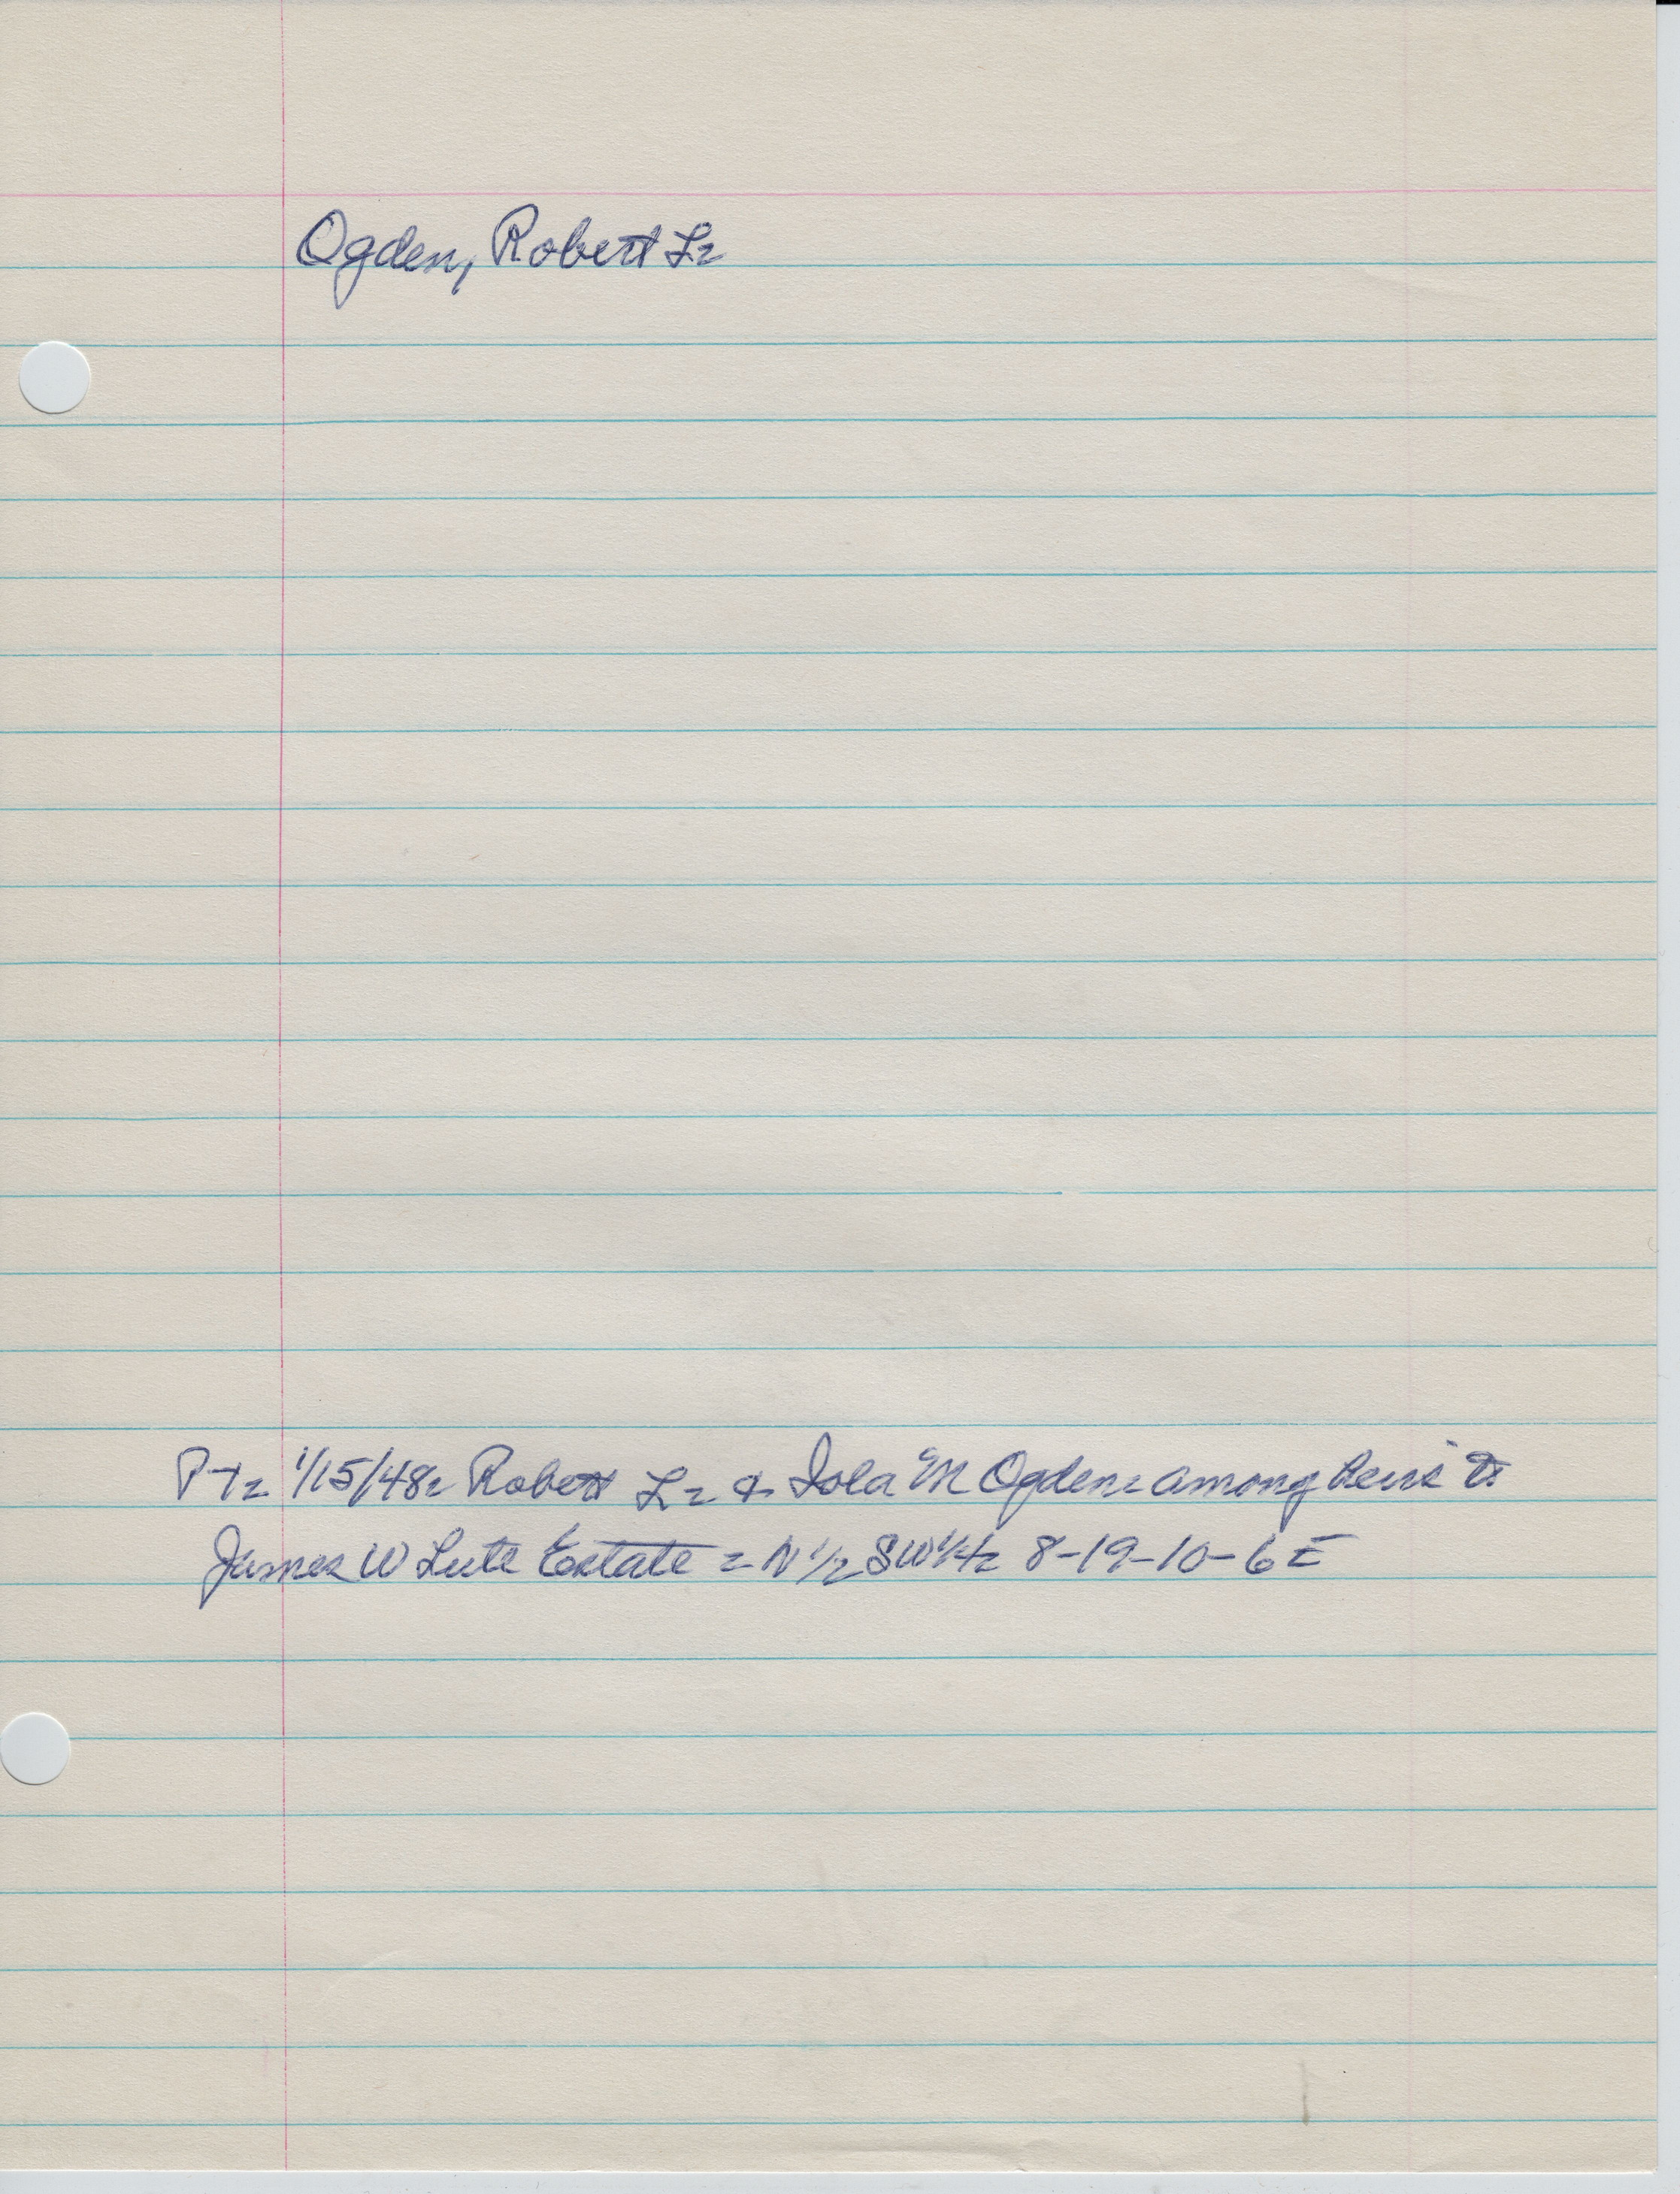 Ogden, Robert L=
P-T= 1/15/48= Robert L= & Iola M Ogden= among heirs to
James W Lute Estate = N 1/2 SW 1/4= 8-19-10-6 E